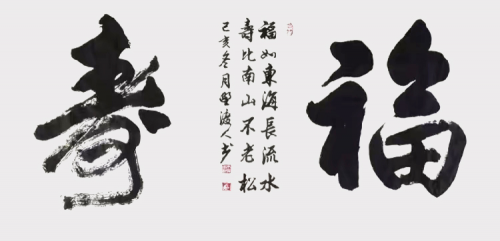 福
福如東海長流水
壽比南山不老松
己亥冬月墅渡人書
壽